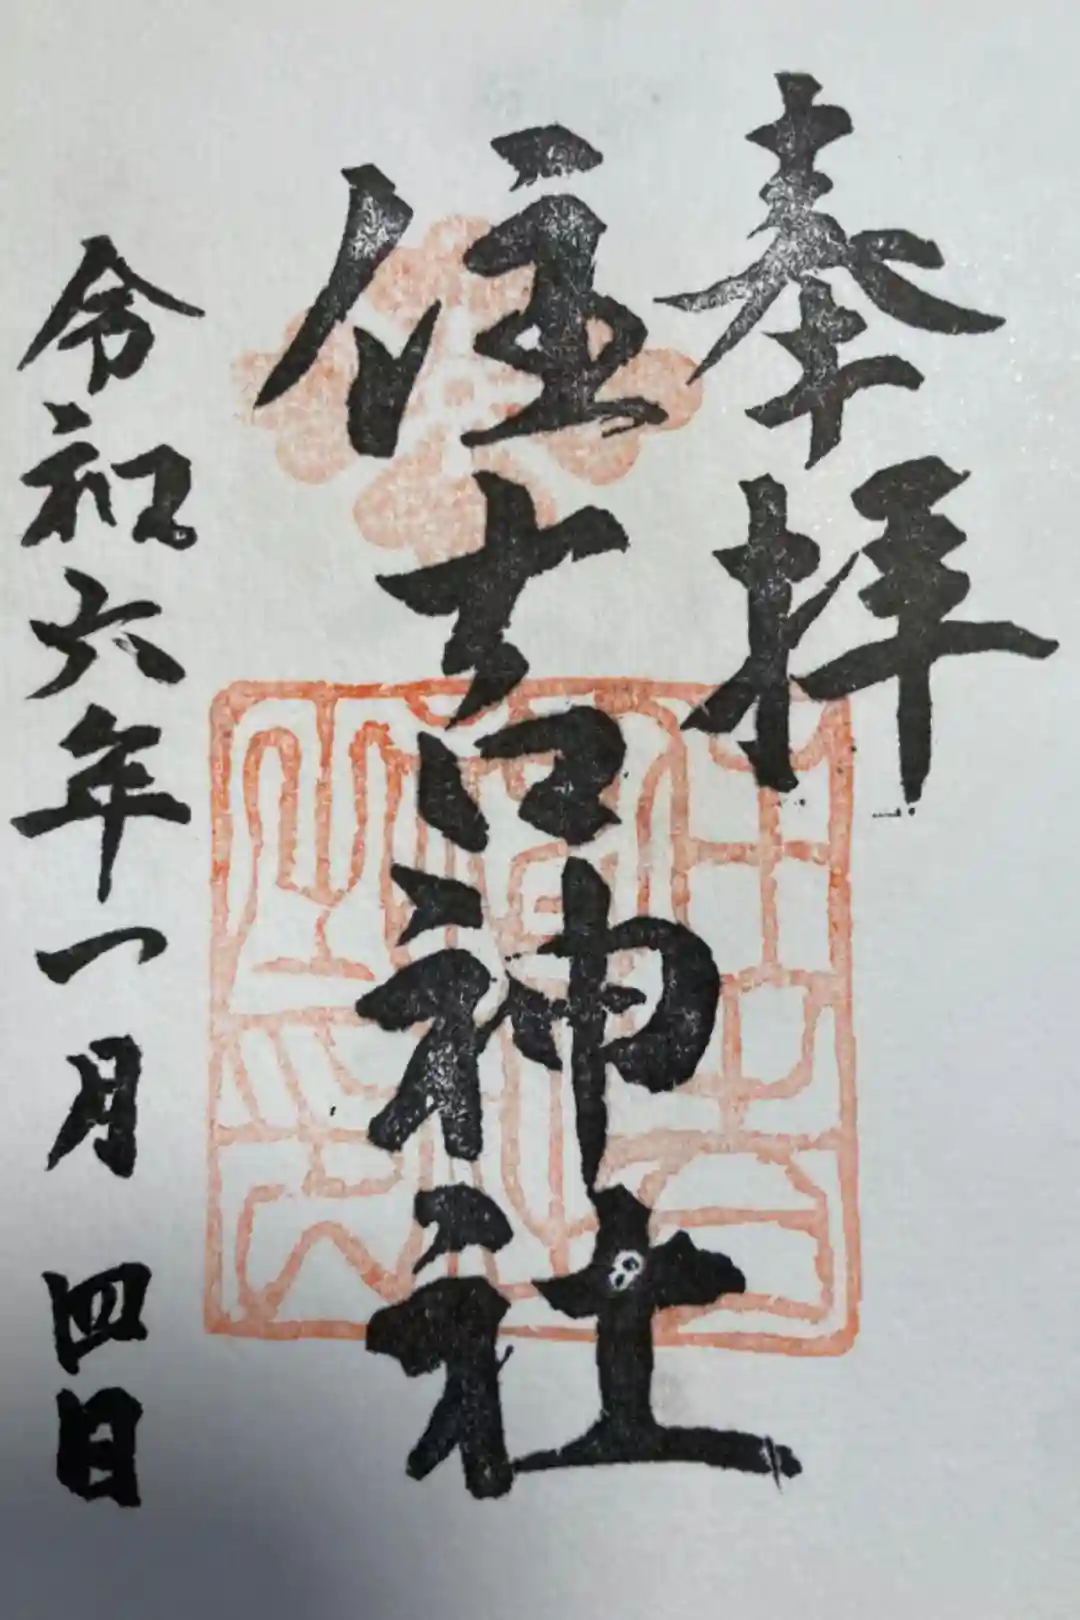 奉拝
住吉神社
令和六年一月四日